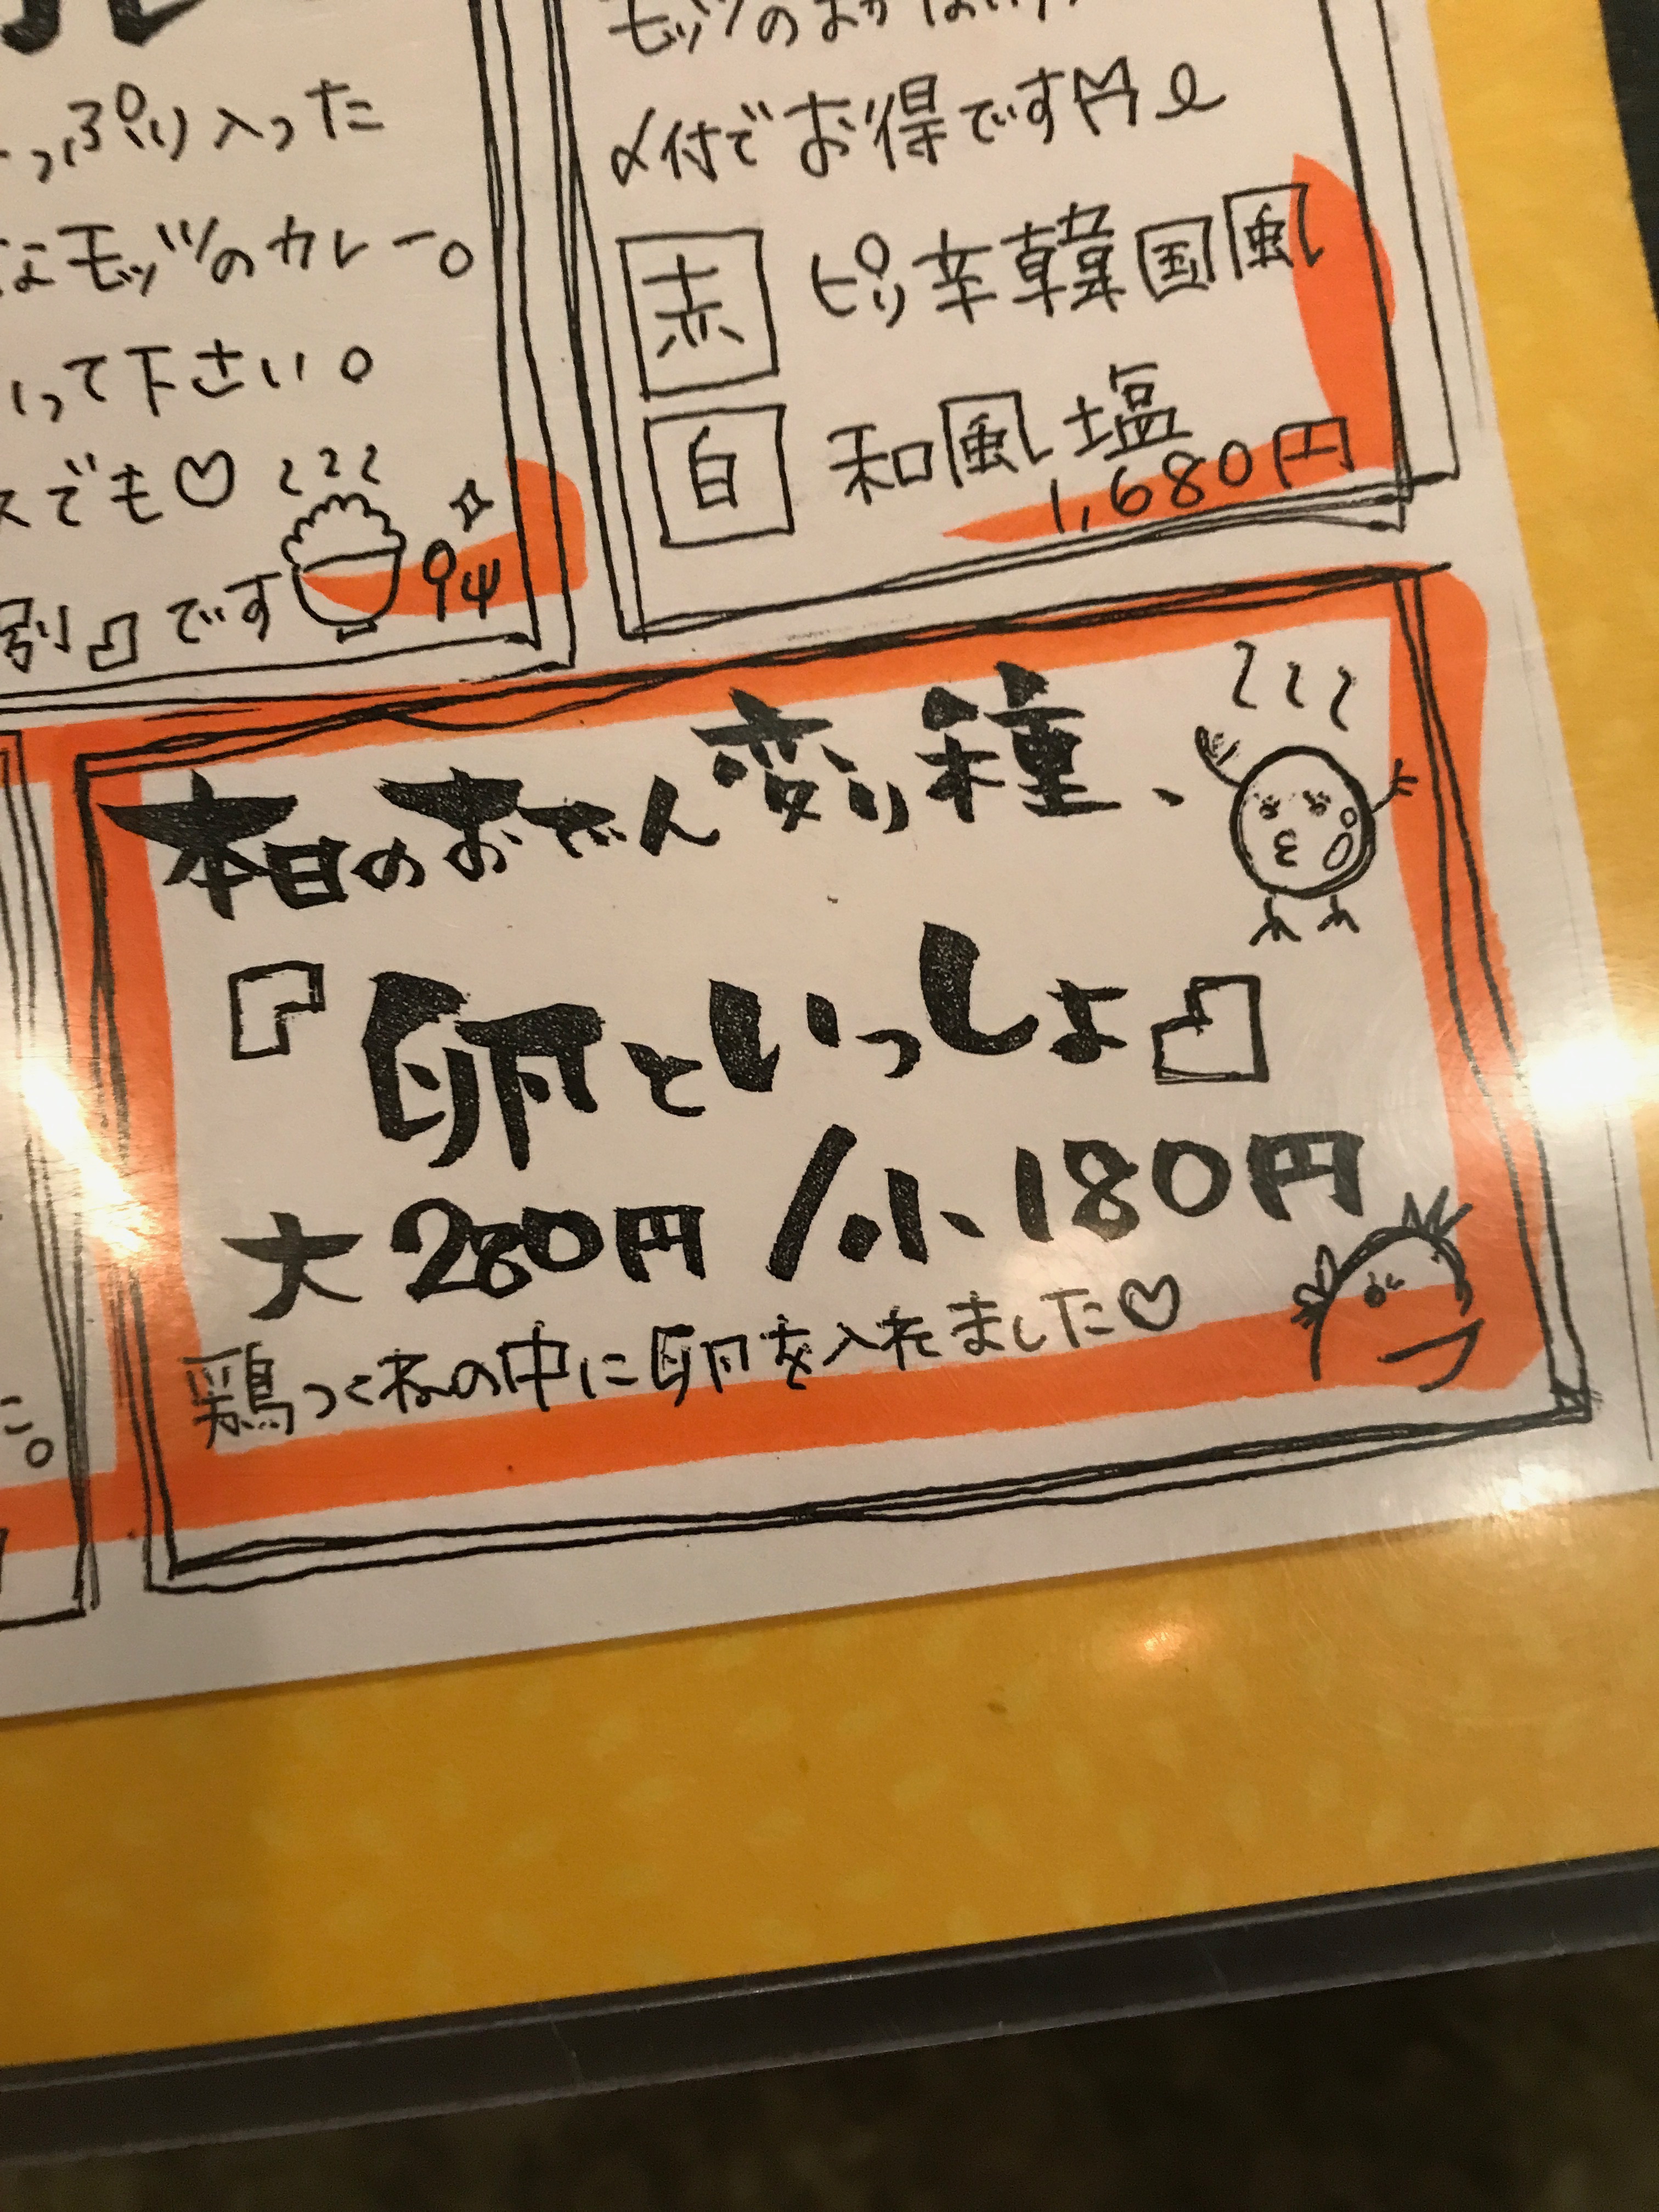 っぷり入った
なモッツのカレー。
って下さい。
スでも♡
別』です
〆付でお得です
赤 ピリ辛韓国風
白 和風塩
1,680円
本日のおでん変り種、
『卵といっしょ』
大280円/小180円
鶏つくねの中に卵を入れました♡